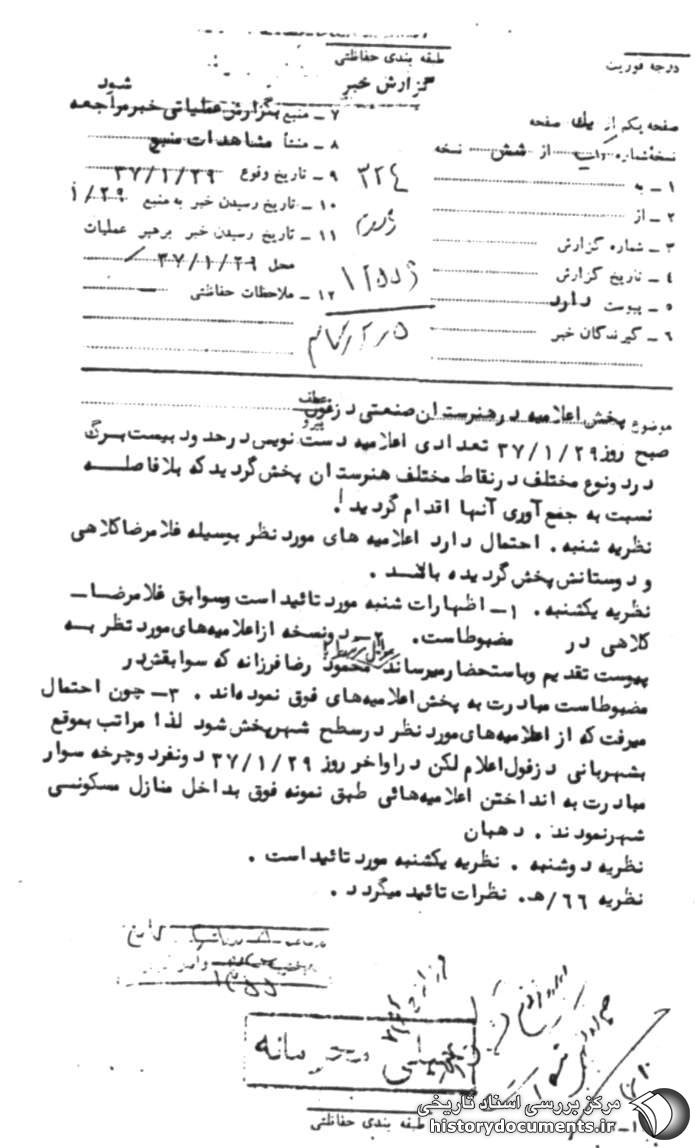 طبقه بندی حفاظتی
درجه فوریت
گزارش خبر
صفحه یکم از یک صفحه
نسخه شماره از شش نسخه
۱ ـ به
۲ ـ از
۳ ـ شماره گزارش
۴ ـ تاریخ گزارش
۵ ـ پیوست دارد
۶ ـ گیرندگان خبر
۷ ـ منبع بگزارش عملیاتی خبر مراجعه شود
۸ ـ منشأ مشاهدات منبع
۹ ـ تاریخ وقوع ۳۷/۱/۲۹
۱۰ ـ تاریخ رسیدن خبر به منبع ۱/۲۹
۱۱ ـ تاریخ رسیدن خبر برهبر عملیات
محل ۳۷/۱/۲۹
۱۲ ـ ملاحظات حفاظتی
۳۲۴
موضوع پخش اعلامیه در هنرستان صنعتی دزفول
عطف
پیرو
صبح روز ۳۷/۱/۲۹ تعدادی اعلامیه دست نویس در حدود بیست برگ
در دو نوع مختلف در نقاط مختلف هنرستان پخش گردید که بلافاصله
نسبت به جمع آوری آنها اقدام گردید.
نظریه شنبه . احتمال دارد اعلامیه های مورد نظر بوسیله غلامرضا کلاهی
و دوستانش پخش گردیده باشد .
نظریه یکشنبه . ۱ـ اظهارات شنبه مورد تائید است وسوابق غلامرضا ـ
کلاهی در مضبوطاست. ۲ـ دونسخه ازاعلامیه‌های مورد نظر به
پیوست تقدیم وباستحضار میرساند محمود رضا فرزانه که سوابقش در
مضبوطاست مبادرت به پخش اعلامیه‌های فوق نموده‌اند . ۳ـ چون احتمال
میرفت که از اعلامیه‌های مورد نظر در سطح شهر پخش شود لذا مراتب بموقع
بشهربانی دزفول اعلام لکن در اواخر روز ۳۷/۱/۲۹ دونفر دوچرخه سوار
مبادرت به انداختن اعلامیه‌هائی طبق نمونه فوق بداخل منازل مسکونی
شهر نمودند . دهبان
نظریه دوشنبه . نظریه یکشنبه مورد تائید است .
نظریه ۶۶/هـ. نظرات تائید میگردد .
خیلی محرمانه
طبقه بندی حفاظتی
مرکز بررسی اسناد تاریخی
historydocuments.ir